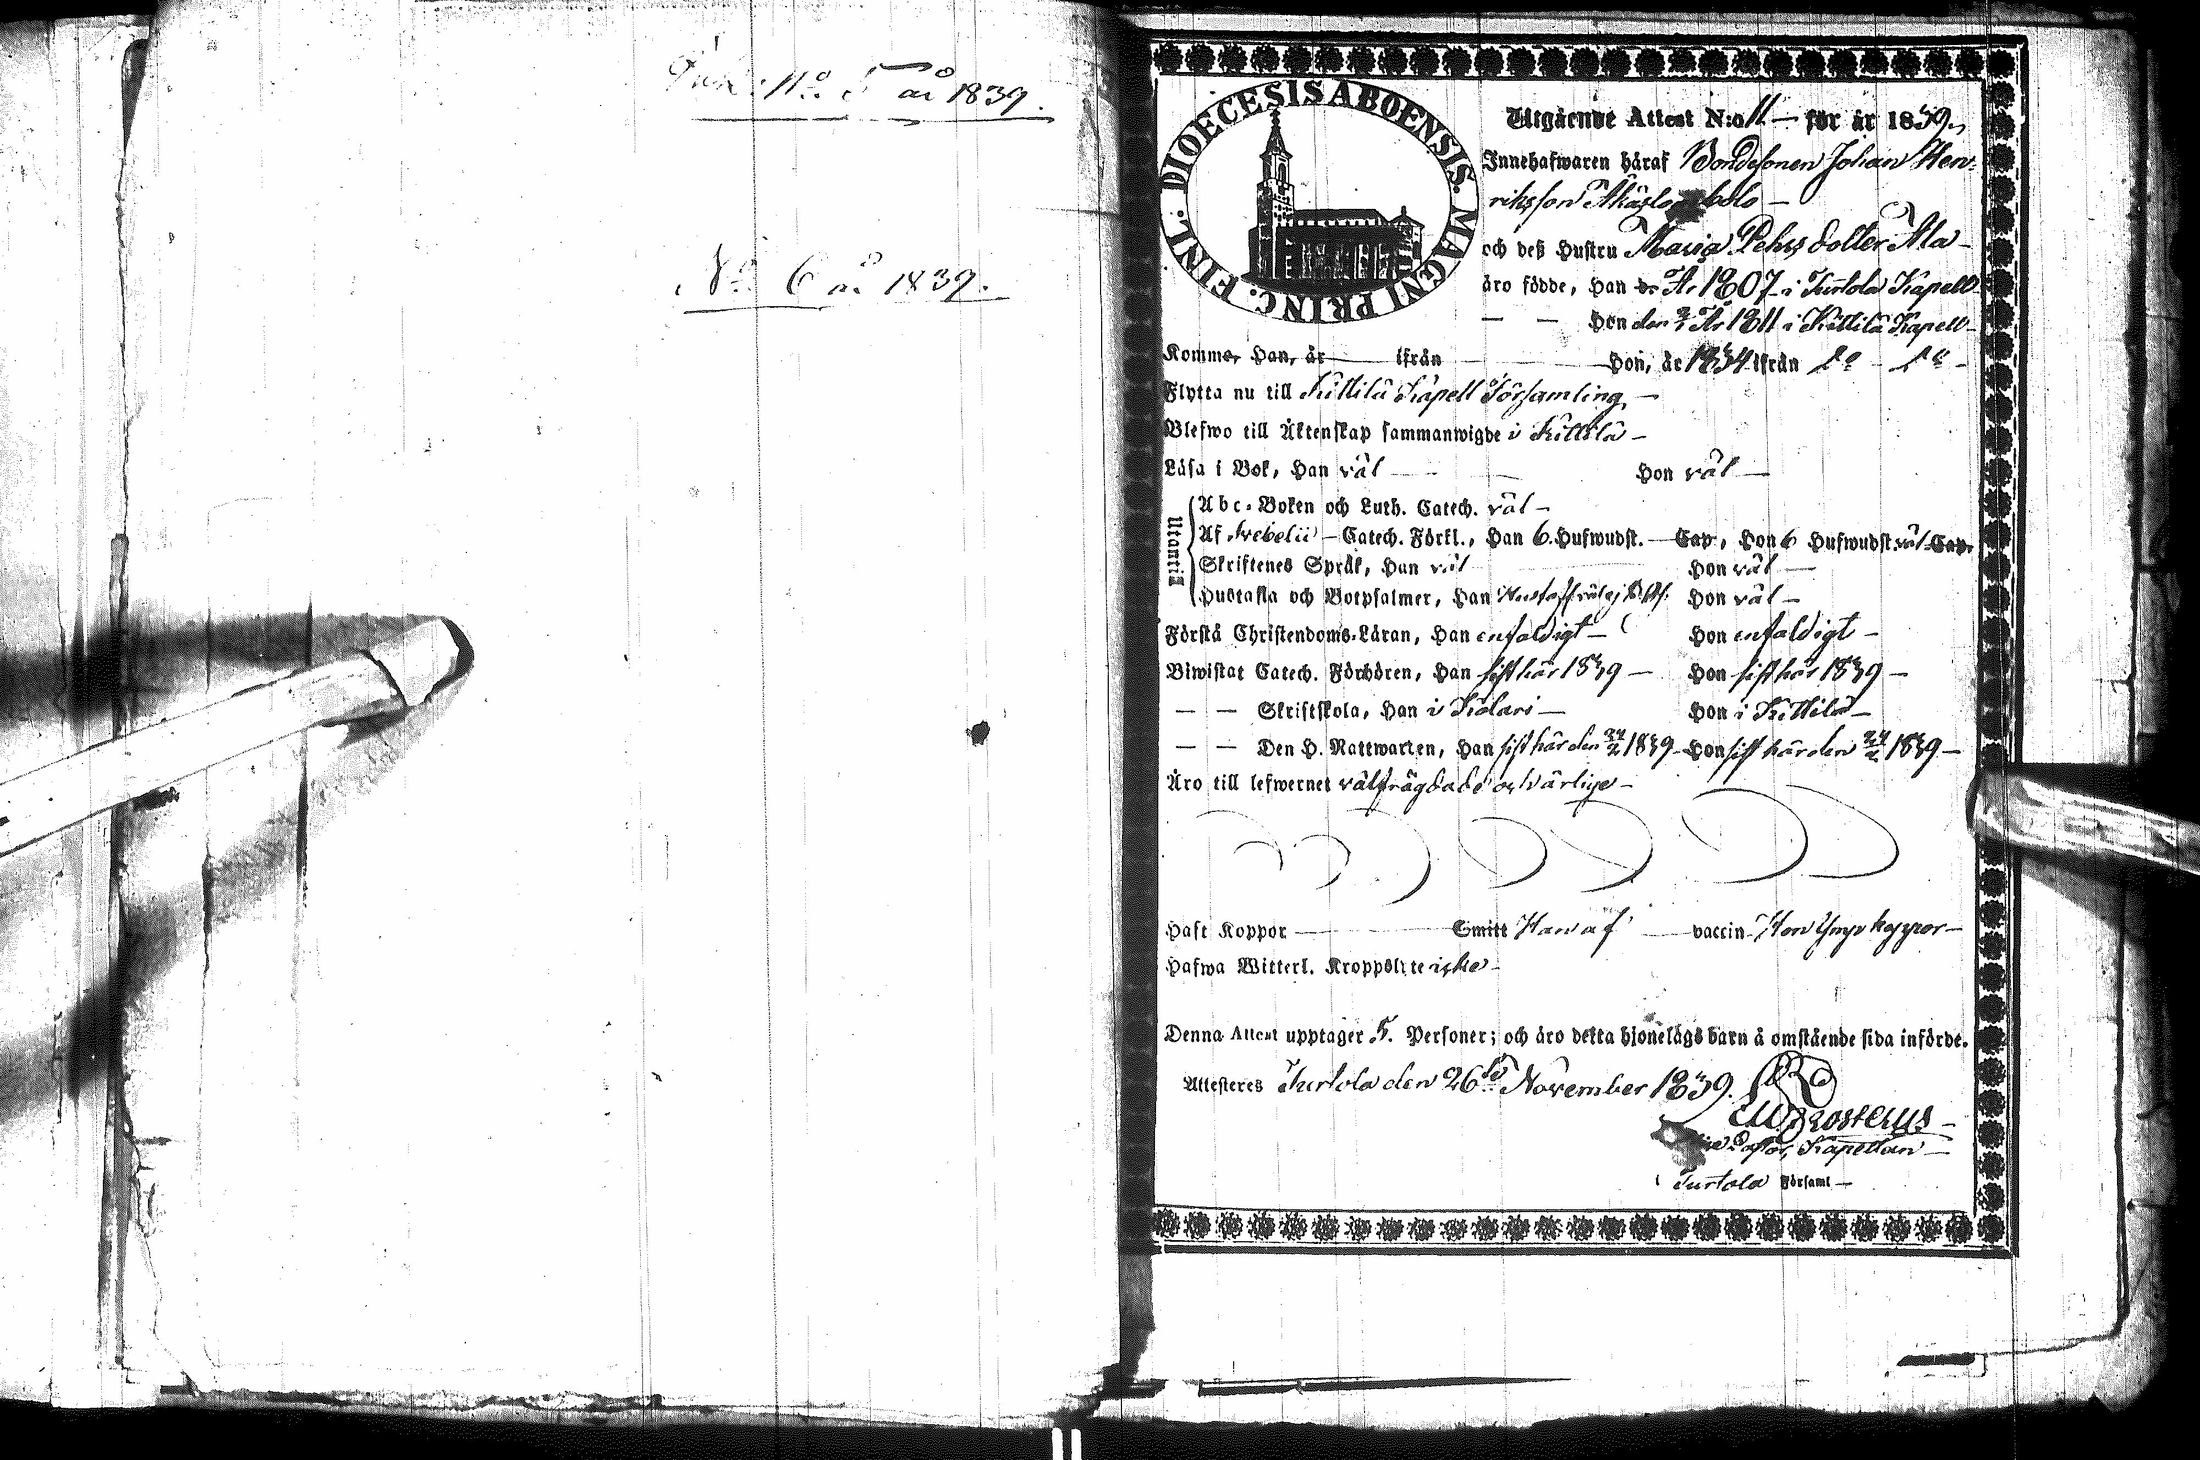 N:o 5 år 1839.
N:o 6 år 1839.
DIOECESIS ABOENSIS. MAGNI PRINC. FINL.
Utgående Attest N:o 11 — för år 1839.
Innehafwaren häraf Bondesonen Johan Hen-
riksson
och deß Hustru Maria Pehrsdotter Ala —
äro födde, Han År 1807 i Turtola Kapell
— — Hon den År 1811 i Kittilä Kapell —
Komme, Han, år — ifrån — Hon, år 1834 ifrån
Flytta nu till Kittilä Kapell Församling. —
Blefwo till Äktenskap sammanwigde i Kittilä —
Läsa i Bok, Han väl — Hon väl —
Utantill
Abc-Boken och Luth. Catech. väl —
Af Svebelii — Catech. Förkl., Han 6. Hufwudst. — Cap, Hon 6 Hufwudst. väl Cap.
Skriftenes Språk, Han väl Hon väl —
Hustafla och Botpsalmer, Han Hon väl —
Förstå Christendoms-Läran, Han enfaldigt — Hon enfaldigt —
Biwistat Catech. Förhören, Han sist här 1839 — Hon sist här 1839 —
— — Skriftskola, Han i Kolari — Hon i Kittilä —
— — Den H. Nattwarten, Han sist här den 24/2 1839 Hon sist här den 24/2 1839 —
Äro till lefwernet välfrägdade och ärlige —
Haft Koppor — Smitt Han af — vaccin Hon Ymp koppor —
Hafwa Witterl. Kroppslyte icke —
Denna Attest upptager 5. Personer; och äro detta hjonelags barn å omstående sida införde.
Attesteres Turtola den 26:te November 1839.
Pastor, Kapellan —
i Turtola Församl —